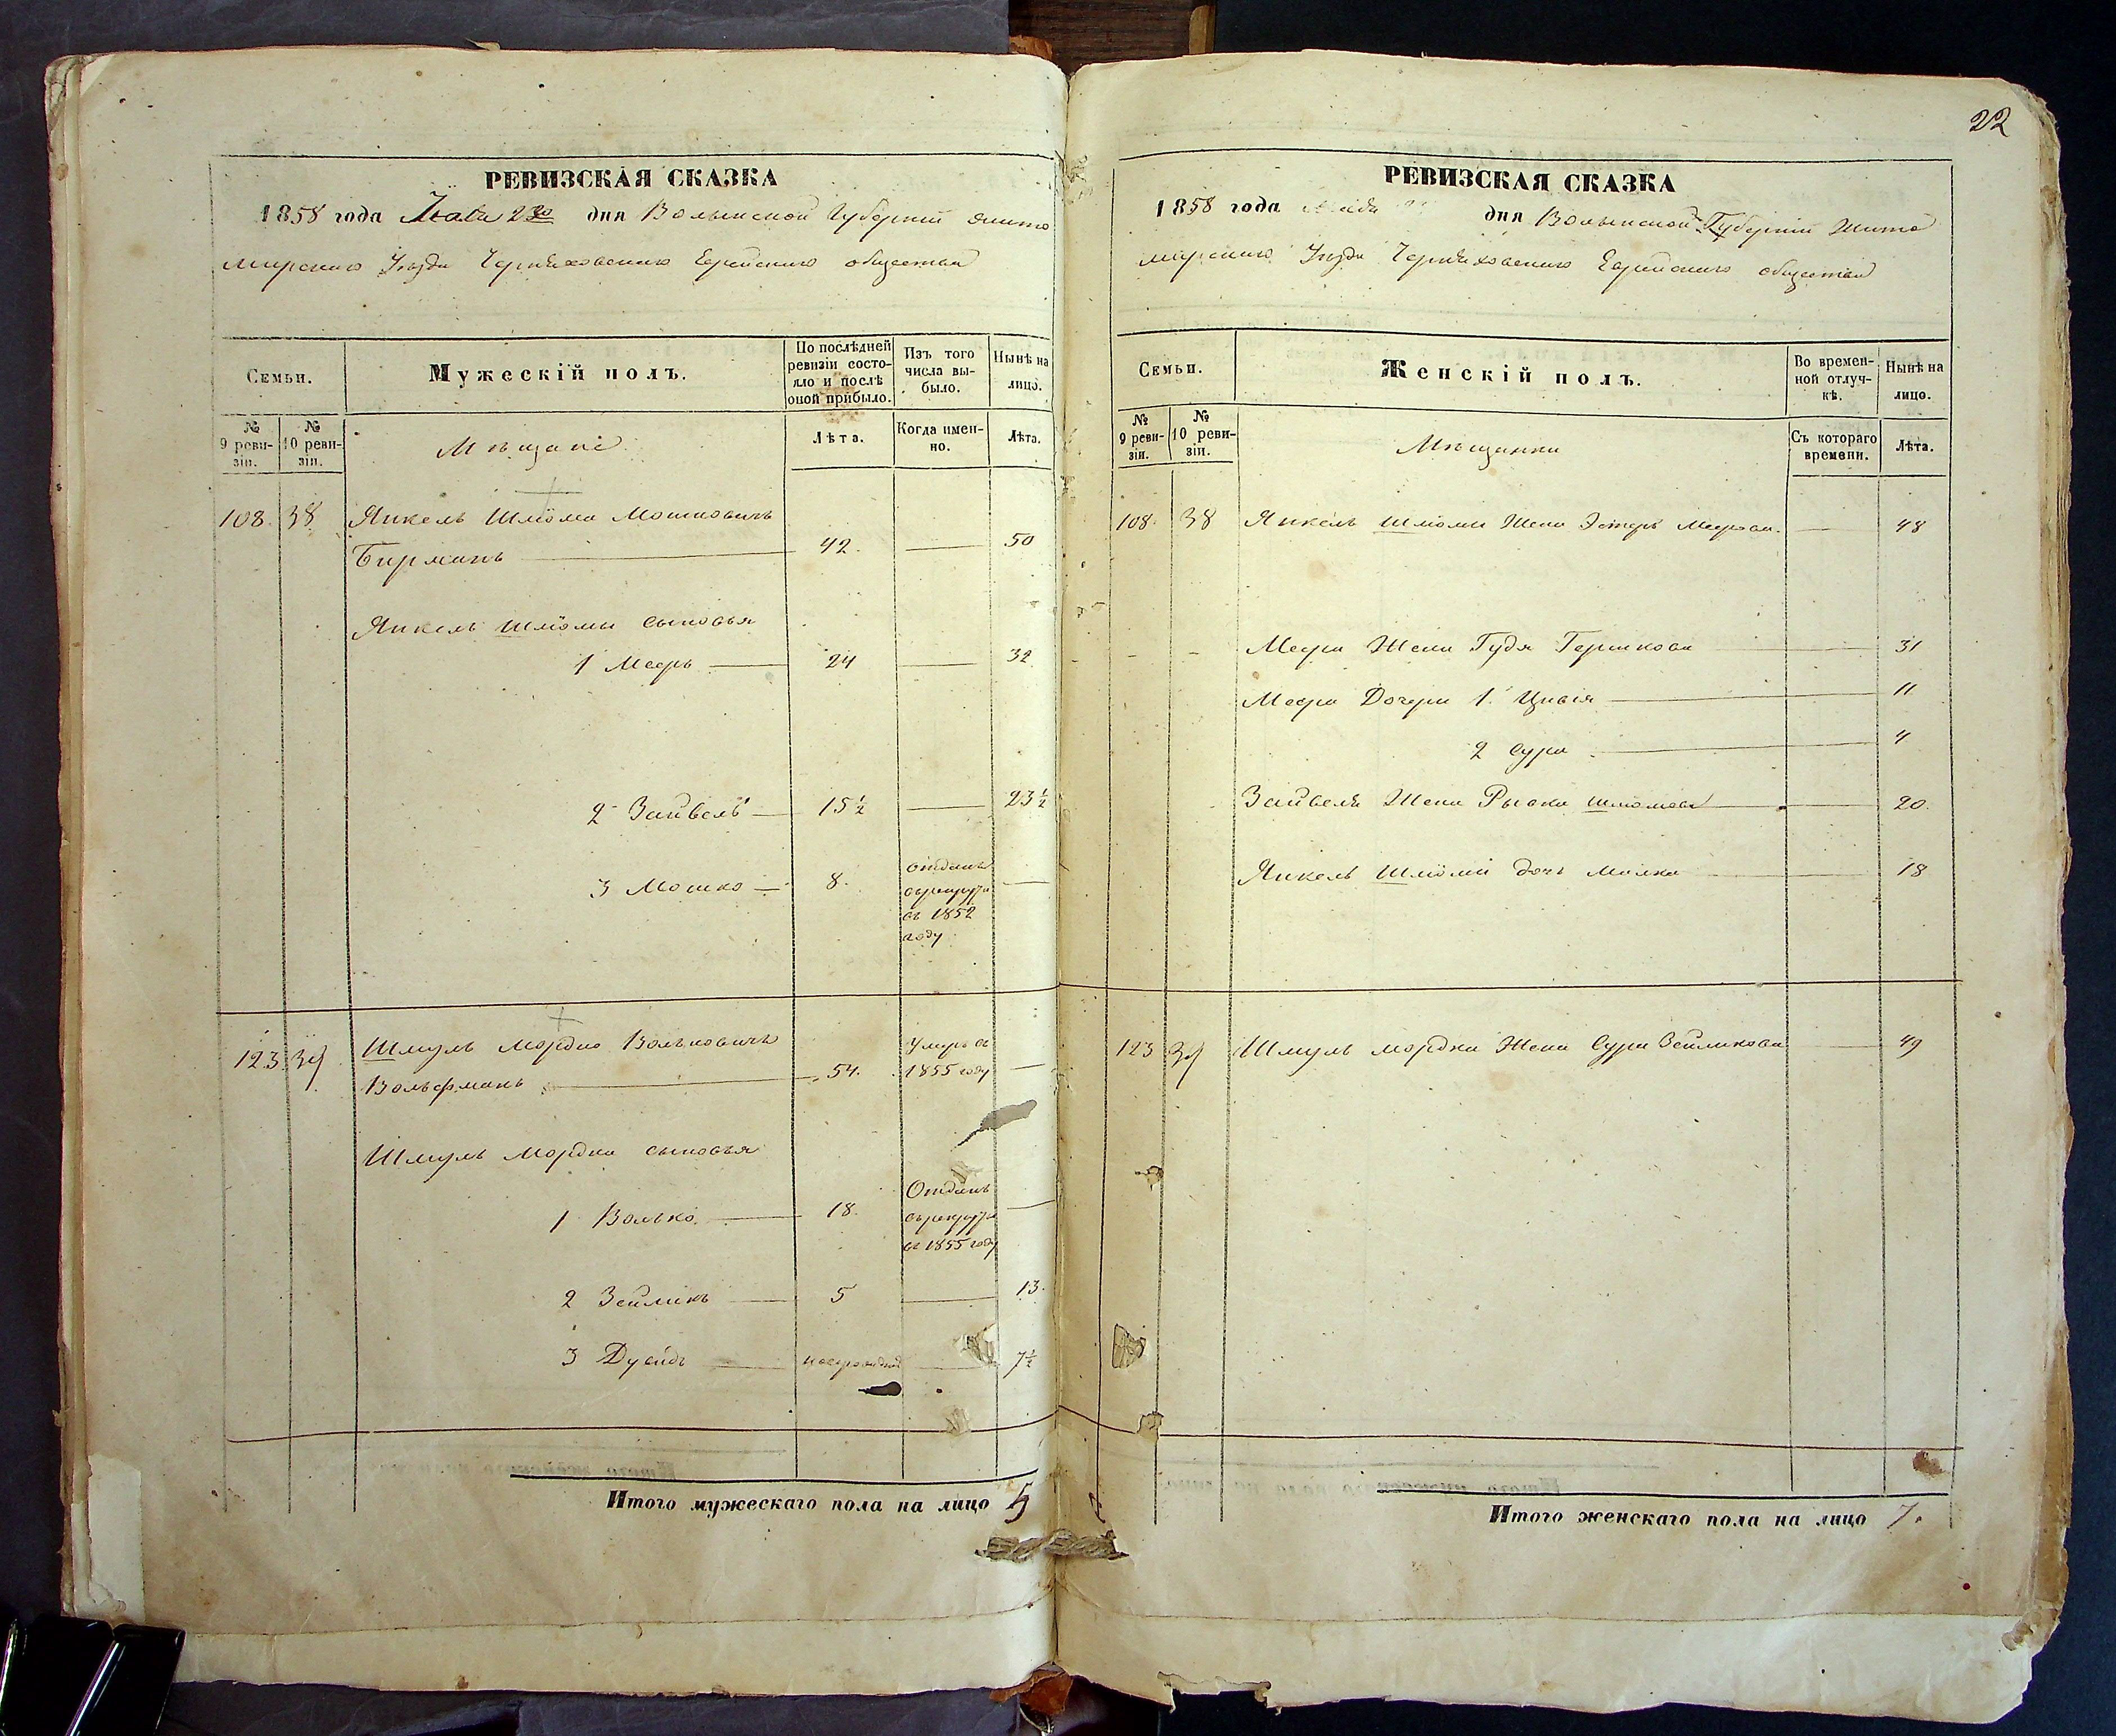 РЕВИЗСКАЯ СКАЗКА
1858 года Маія 2 дня Волынской Губерніи Жито
мирскаго Уѣзда Черняховскаго Еврейскаго общества
Семьи.
Мужескій полъ.
По послѣдней ревизіи состояло и послѣ оной прибыло.
Изъ того числа выбыло.
Нынѣ на лицо.
№ 9 ревизіи.
№ 10 ревизіи.
Мѣщане
Лѣта.
Когда именно.
Лѣта.
108. 38 Янкель Шлёма Мошковичъ
Бирманъ 42. 50
Янкель Шлёмы сыновья
1 Мееръ 24 32
2 Зайвель 15½ 23½
3 Мошко 8. отданъ
въ рекруты
въ 1852
году
123. 39 Шмуль Мордко Вольковичъ
Вольфманъ 54. Умеръ въ
1855 году
Шмуль Мордка сыновья
1 Волько 18. Отданъ
въ рекруты
въ 1855 году
2 Зейликъ 5 13.
3 Дувидъ 7½
Итого мужескаго пола на лицо 5
22
РЕВИЗСКАЯ СКАЗКА
1858 года Маія дня Волынской Губерніи Жито
мирскаго Уѣзда Черняховскаго Еврейскаго общества
Семьи.
Женскій полъ.
Во временной отлучкѣ.
Нынѣ на лицо.
№ 9 ревизіи.
№ 10 ревизіи.
Мѣщанки
Съ котораго времени.
Лѣта.
108. 38 Янкель Шлёмы Жена Эстеръ Меерова. 48
Меера Жена Гудя Гершкова 31
Меера Дочери 1. Цивія 11
2 Сура 4
Зайвеля Жена Рывка Шлёмова 20.
Янкель Шлёмы дочь Малка 18
123 39 Шмуль Мордка Жена Сура Зейликова 49
Итого женскаго пола на лицо 7.